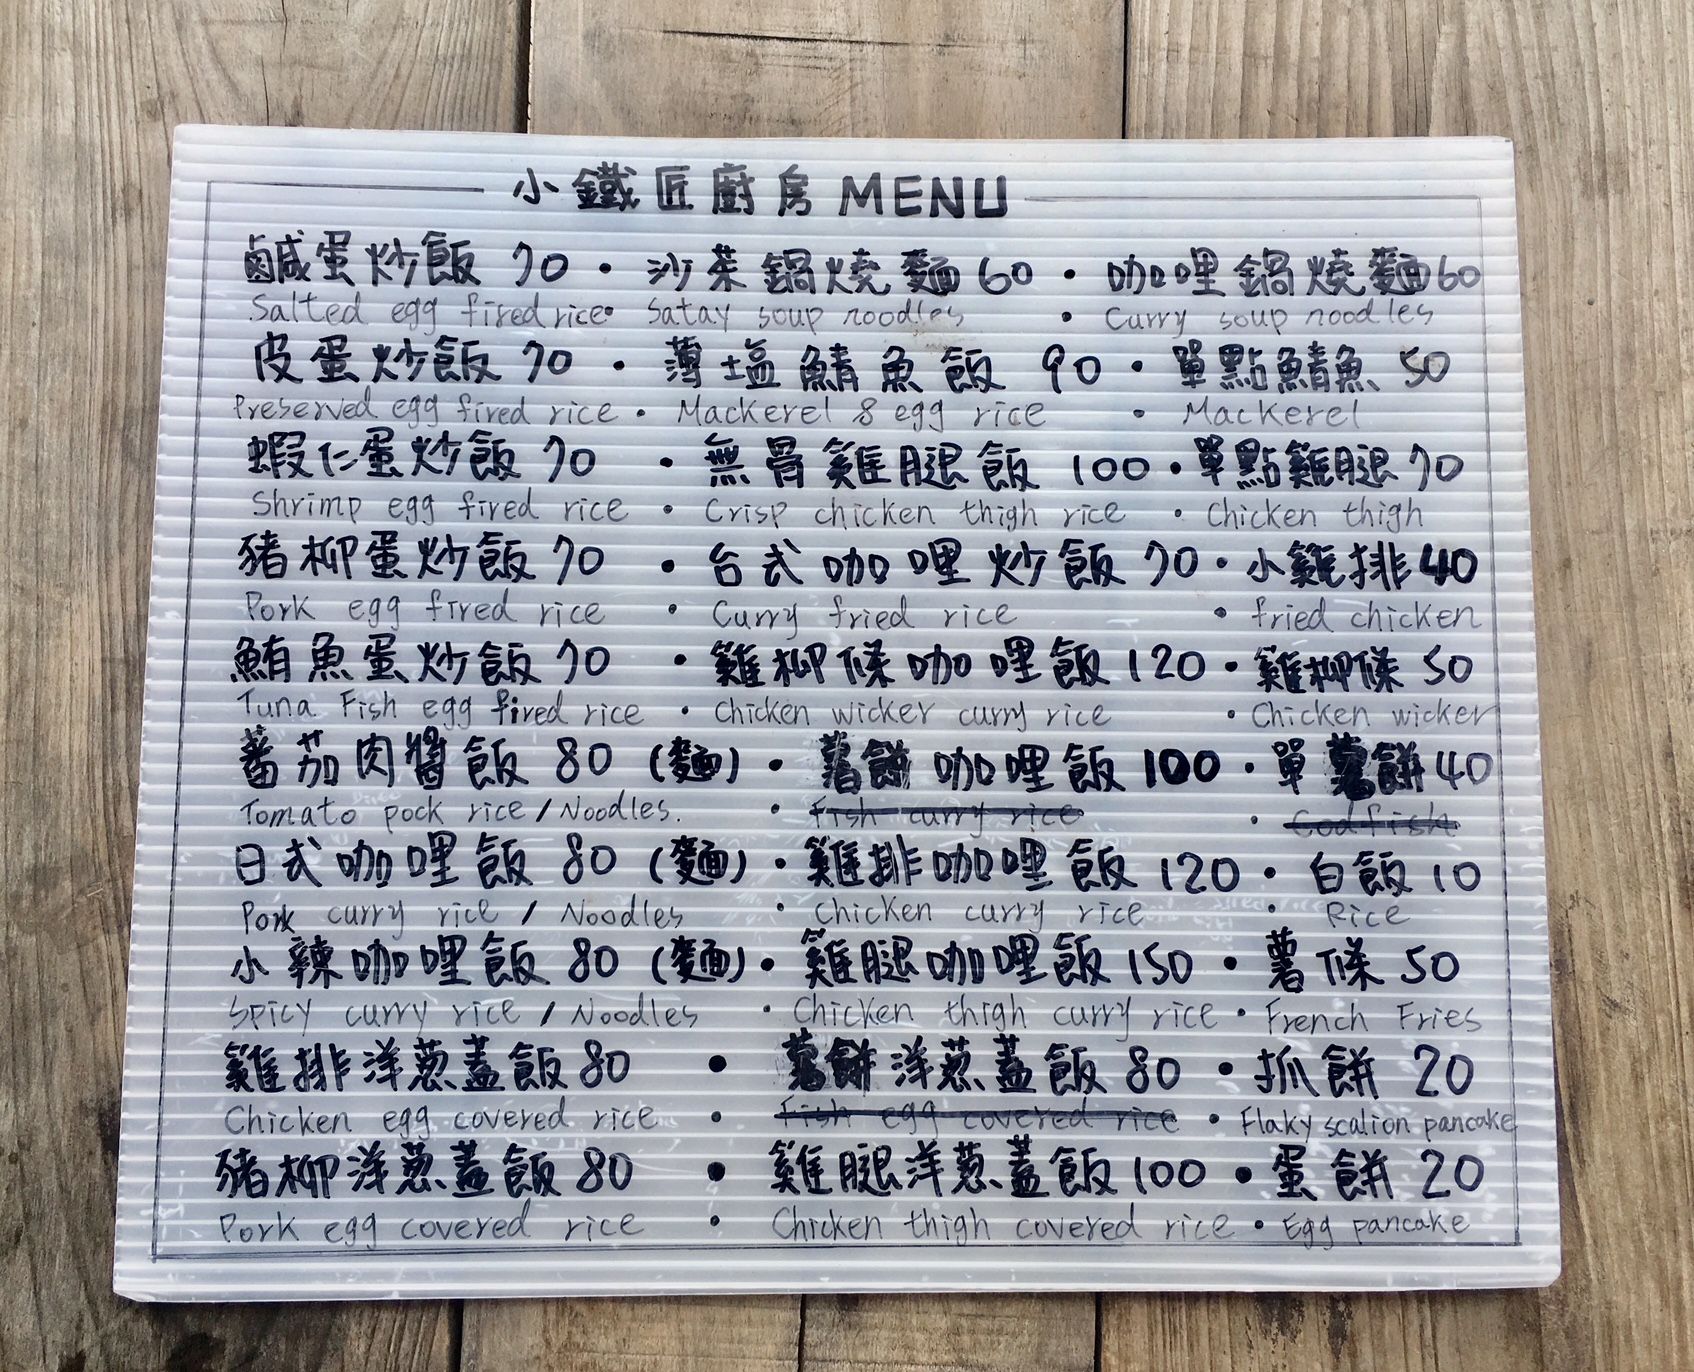 小鐵匠廚房 MENU
鹹蛋炒飯 70 · 沙茶鍋燒麵 60 · 咖哩鍋燒麵 60
Salted egg fired rice · Satay soup noodles · Curry soup noodles
皮蛋炒飯 70 · 薄塩鯖魚飯 90 · 單點鯖魚 50
Preserved egg fired rice · Mackerel & egg rice · Mackerel
蝦仁蛋炒飯 70 · 無骨雞腿飯 100 · 單點雞腿 70
Shrimp egg fired rice · Crisp chicken thigh rice · Chicken thigh
豬柳蛋炒飯 70 · 台式咖哩炒飯 70 · 小雞排 40
Pork egg fired rice · Curry fried rice · fried chicken
鮪魚蛋炒飯 70 · 雞柳條咖哩飯 120 · 雞柳條 50
Tuna Fish egg fired rice · Chicken wicker curry rice · Chicken wicker
蕃茄肉醬飯 80 (麵) · 薯餅咖哩飯 100 · 單薯餅 40
Tomato pock rice / Noodles. · Fish curry rice · Codfish
日式咖哩飯 80 (麵) · 雞排咖哩飯 120 · 白飯 10
Pork curry rice / Noodles · Chicken curry rice · Rice
小辣咖哩飯 80 (麵) · 雞腿咖哩飯 150 · 薯條 50
Spicy curry rice / Noodles · Chicken thigh curry rice · French Fries
雞排洋蔥蓋飯 80 · 薯餅洋蔥蓋飯 80 · 抓餅 20
Chicken egg covered rice · Fish egg covered rice · Flaky scalion pancake
豬柳洋蔥蓋飯 80 · 雞腿洋蔥蓋飯 100 · 蛋餅 20
Pork egg covered rice · Chicken thigh covered rice · Egg pancake